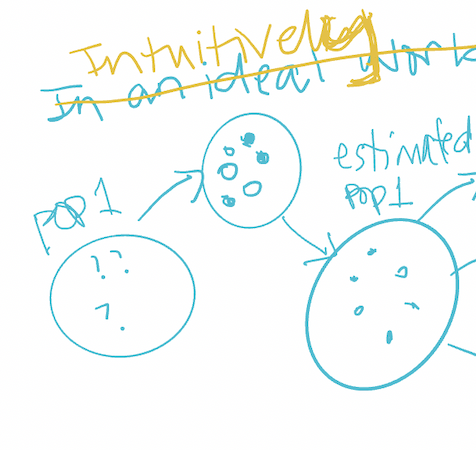 Intuitively
In an ideal work
pop 1
estimated
pop 1
!?
?